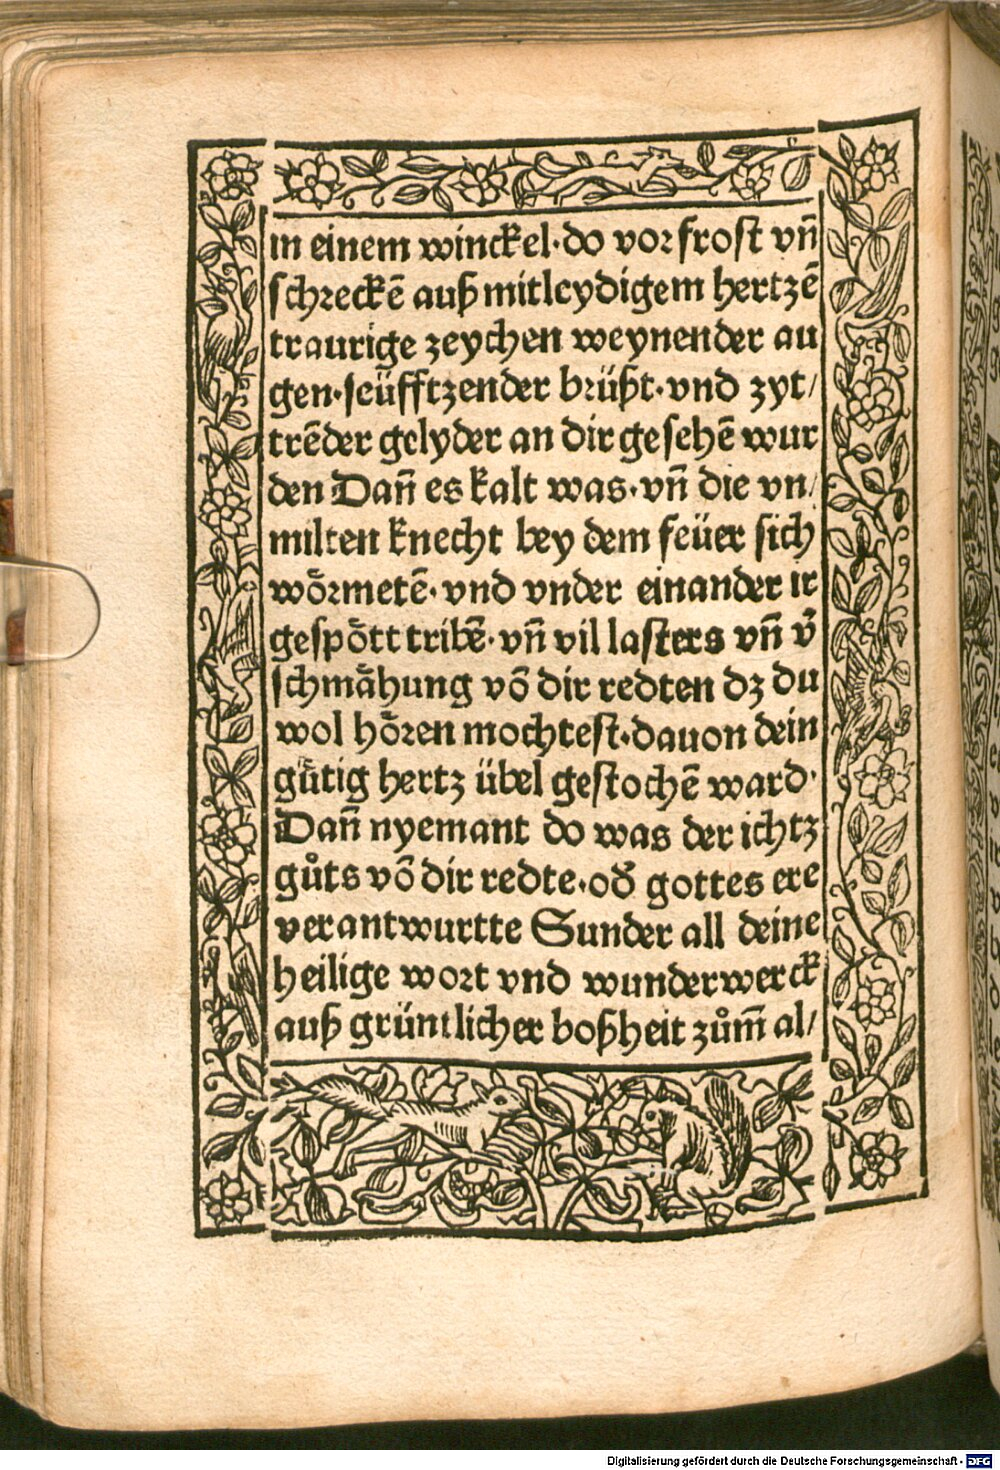 in einem winckel·do vor frost vn̄
schreckē auß mitleydigem hertzē
traurige zeychen weynender au
gen·seüfftzender brüßt·vnd zyt/
trēder gelyder an dir gesehē wur
den Dan̄ es kalt was·vn̄ die vn/
milten knecht bey dem feüer sich
woͤrmetē·vnd vnder einander ir
gespoͤtt tribē·vn̄ vil lasters vn̄ v̄
schmaͤhung vō dir redten dz du
wol hoͤren mochtest·dauon dein
guͤtig hertz übel gestochē ward·
Dan̄ nyemant do was der ichtz
guͦts vō dir redte·od̄ gottes ere
verantwurtte Sunder all deine
heilige wort vnd wunderwerck
auß grüntlicher boßheit zuͦm̄ al/
Digitalisierung gefördert durch die Deutsche Forschungsgemeinschaft - DFG